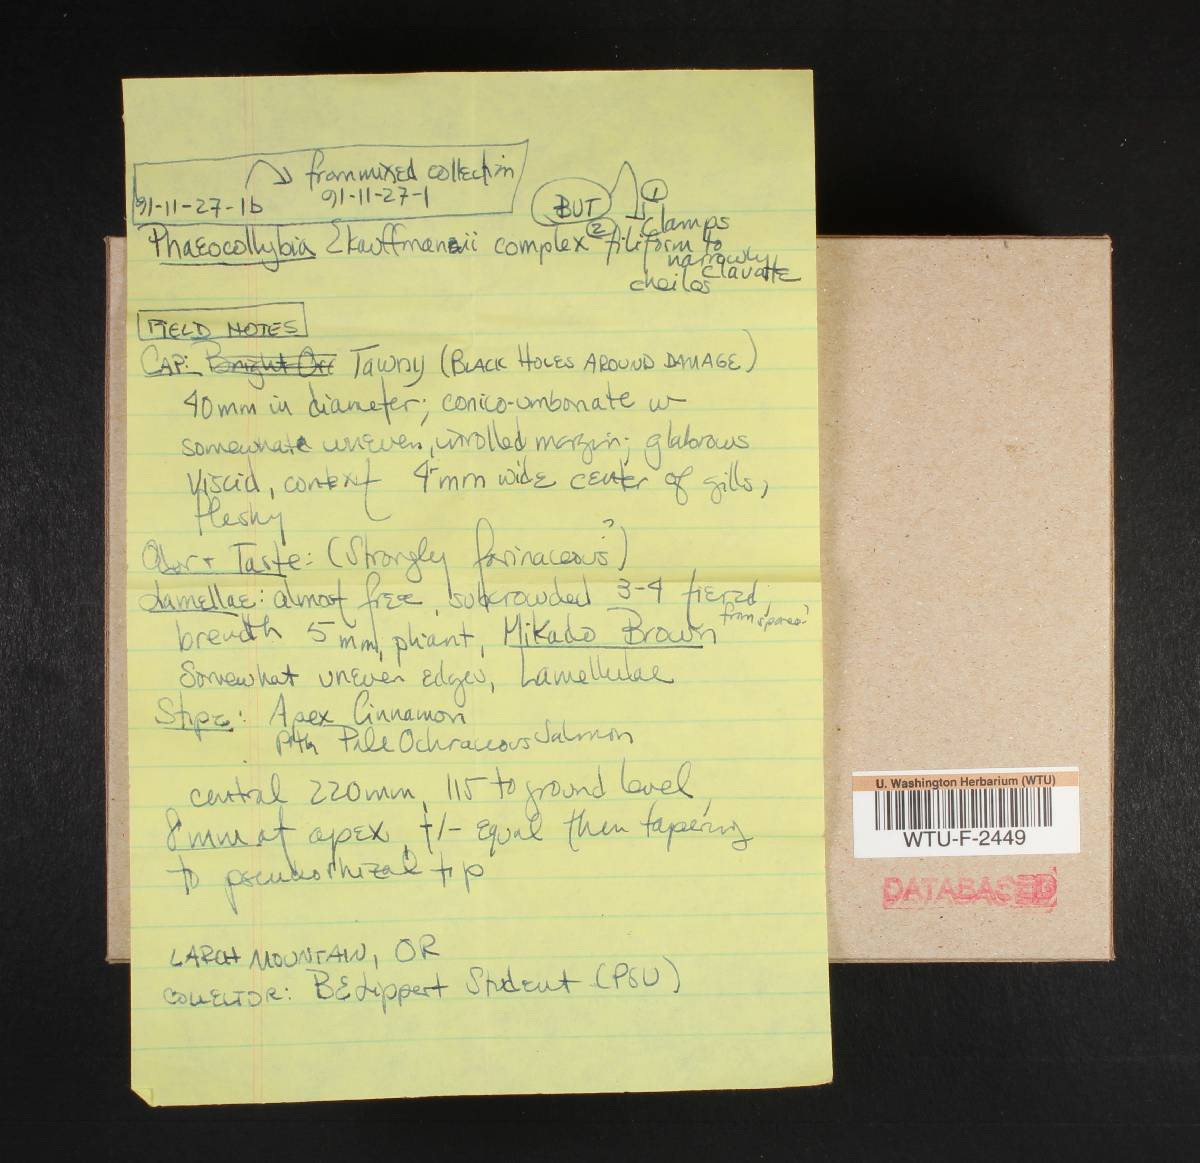 from mixed collection
91-11-27-1b 91-11-27-1
BUT ① clamps
Phaeocollybia kauffmanii complex ② filiform to
narrowly
clavate
cheilos
FIELD NOTES
CAP: Bright Tawny (BLACK HOLES AROUND DAMAGE)
40mm in diameter; conico-umbonate w
somewhate uneven, inrolled margin; glabrous
Viscid, context 4mm wide center of gills,
fleshy
Odor + Taste: (Strongly farinaceous?)
Lamellae: almost free, subcrowded 3-4 tiered,
breadth 5mm, pliant, Mikado Brown from spores?
Somewhat uneven edges, Lamellulae
Stipe: Apex Cinnamon
pith Pale Ochraceous Salmon
central 220mm, 115 to ground level,
8mm at apex, +/- equal then tapering
to pseudorhizal tip
LARCH MOUNTAIN, OR
COLLECTOR: BE Lippert Student (PSU)
U. Washington Herbarium (WTU)
WTU-F-2449
DATABASED